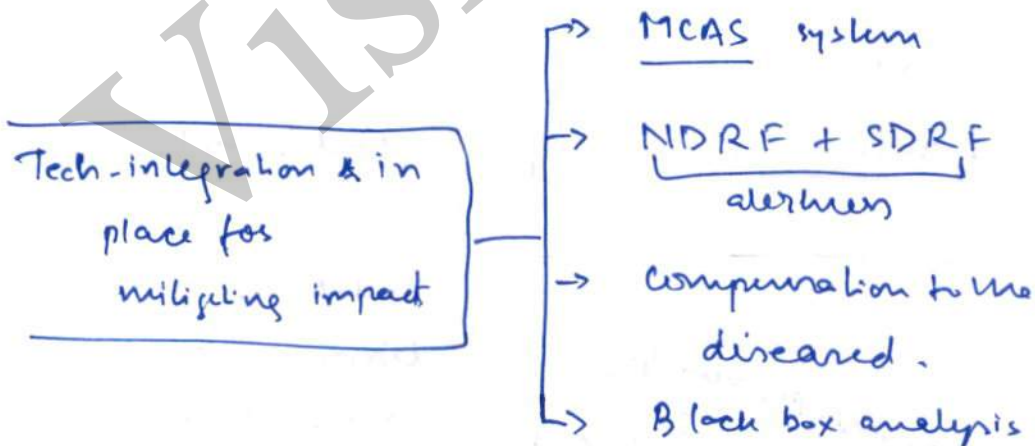 Tech-integration & in
place for
mitigating impact
MCAS system
NDRF + SDRF
alertness
compensation to the
diseased.
Black box analysis